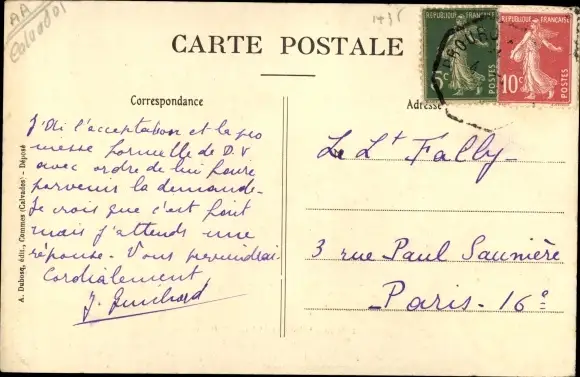 AA
Calvados
1435
CARTE POSTALE
RÉPUBLIQUE FRANÇAISE
POSTES
RÉPUBLIQUE FRANÇAISE
10c
POSTES
Correspondance
Adresse
J'ai l'acceptation et la pro
messe formelle de D.V
avec ordre de lui faire
parvenir la demande-
Je crois que c'est fait
mais j'attends une
réponse. Vous
Cordialement
J. Guichard
Le Lt Fally-
3 rue Paul Saunière
Paris-16e
A. Dubosq, édit., Commes (Calvados) - Déposé